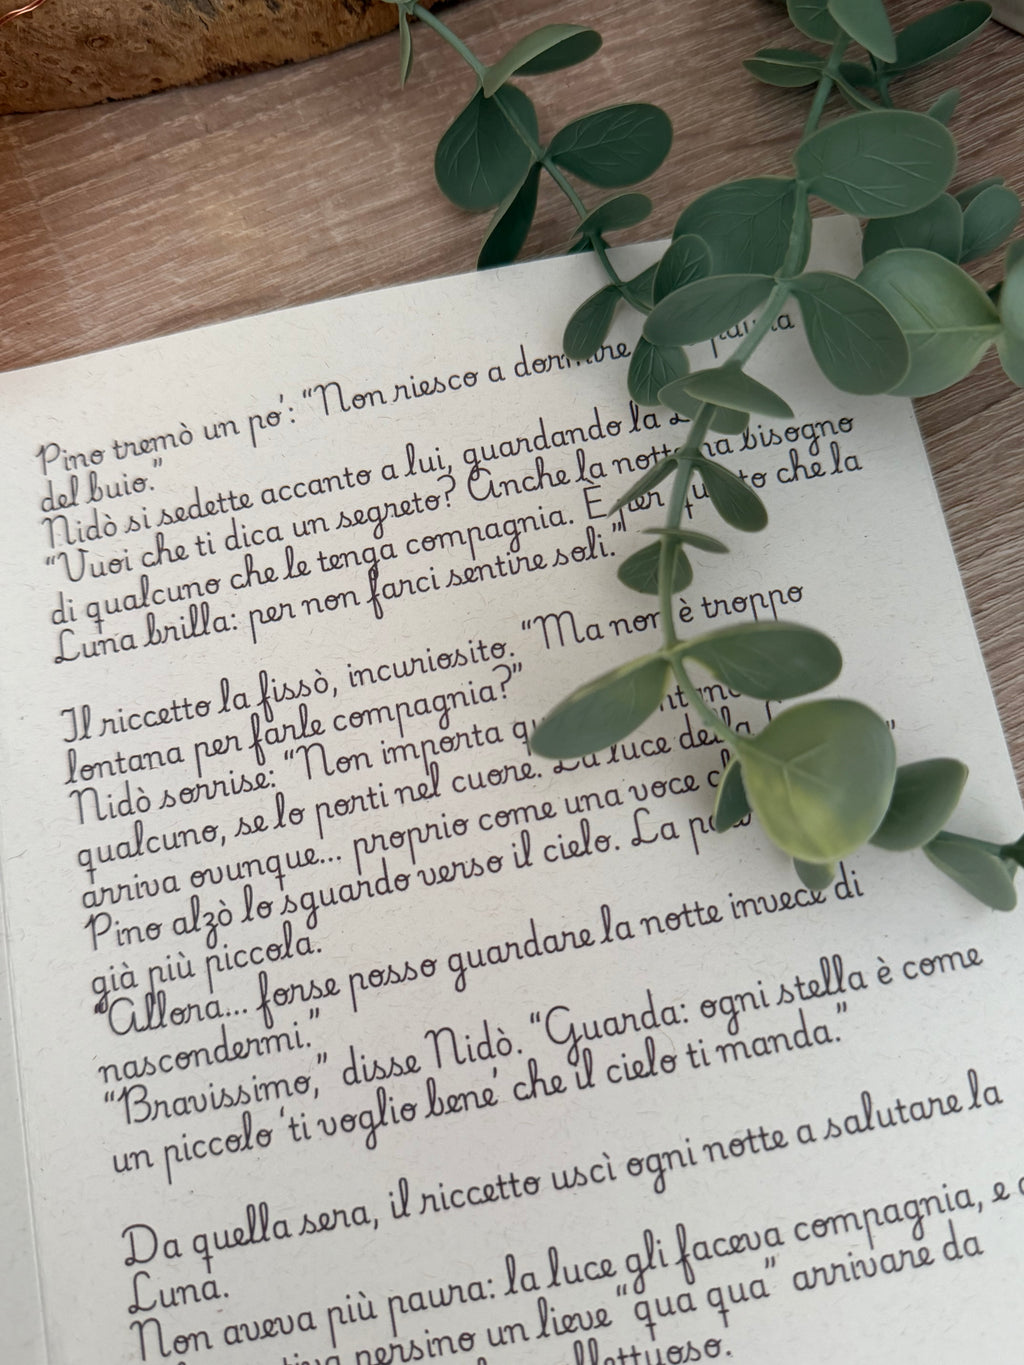 Pino tremò un po': “Non riesco a dormire paura
del buio.”
Nidò si sedette accanto a lui, guardando la
“Vuoi che ti dica un segreto? Anche la notte ha bisogno
di qualcuno che le tenga compagnia. È per questo che la
Luna brilla: per non farci sentire soli.”
Il riccetto la fissò, incuriosito. “Ma non è troppo
lontana per farle compagnia?”
Nidò sorrise: “Non importa
qualcuno, se lo porti nel cuore. La luce della
arriva ovunque... proprio come una voce
Pino alzò lo sguardo verso il cielo. La
già più piccola.
“Allora... forse posso guardare la notte invece di
nascondermi.”
“Bravissimo,” disse Nidò. “Guarda: ogni stella è come
un piccolo 'ti voglio bene' che il cielo ti manda.”
Da quella sera, il riccetto uscì ogni notte a salutare la
Luna.
Non aveva più paura: la luce gli faceva compagnia, e
persino un lieve “qua qua” arrivare da